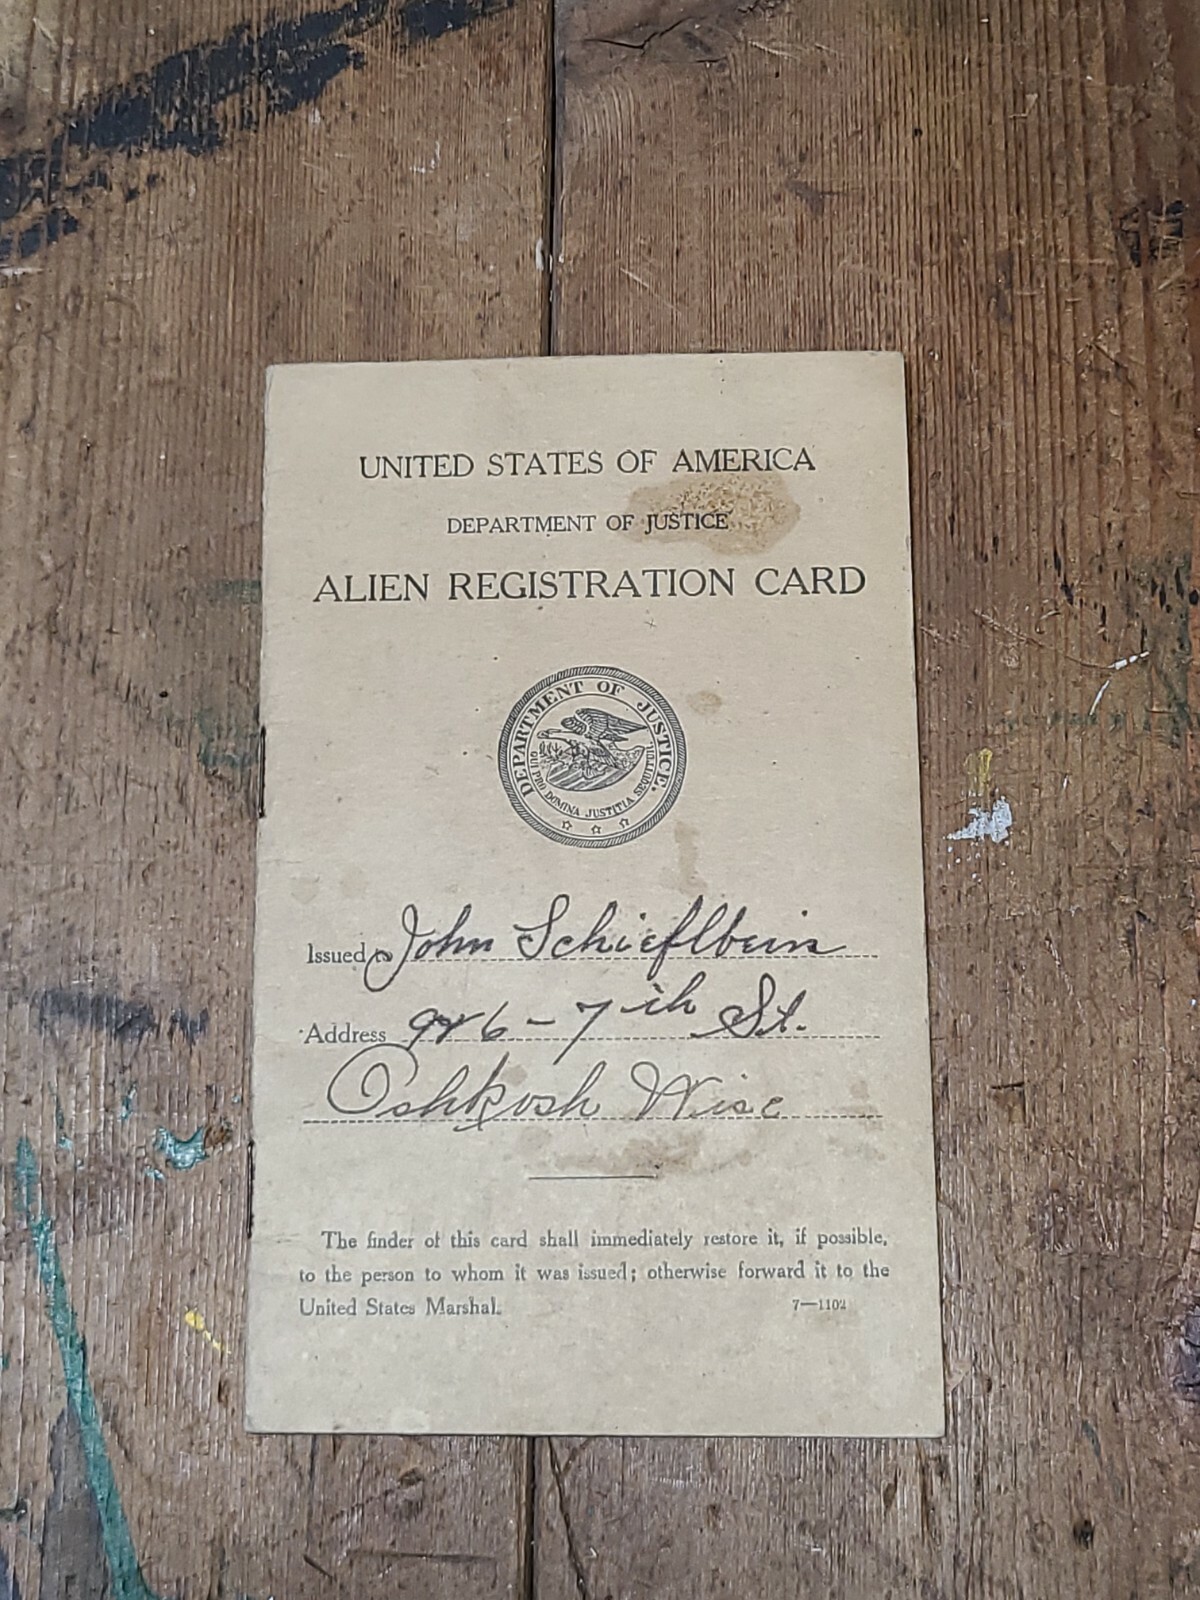 UNITED STATES OF AMERICA
DEPARTMENT OF JUSTICE
ALIEN REGISTRATION CARD
DEPARTMENT OF JUSTICE.
QUI PRO DOMINA JUSTITIA SEQUITUR
Issued to John Schieflbein
Address 926-7th St.
Oshkosh Wisc
The finder of this card shall immediately restore it, if possible,
to the person to whom it was issued; otherwise forward it to the
United States Marshal.
7—1102